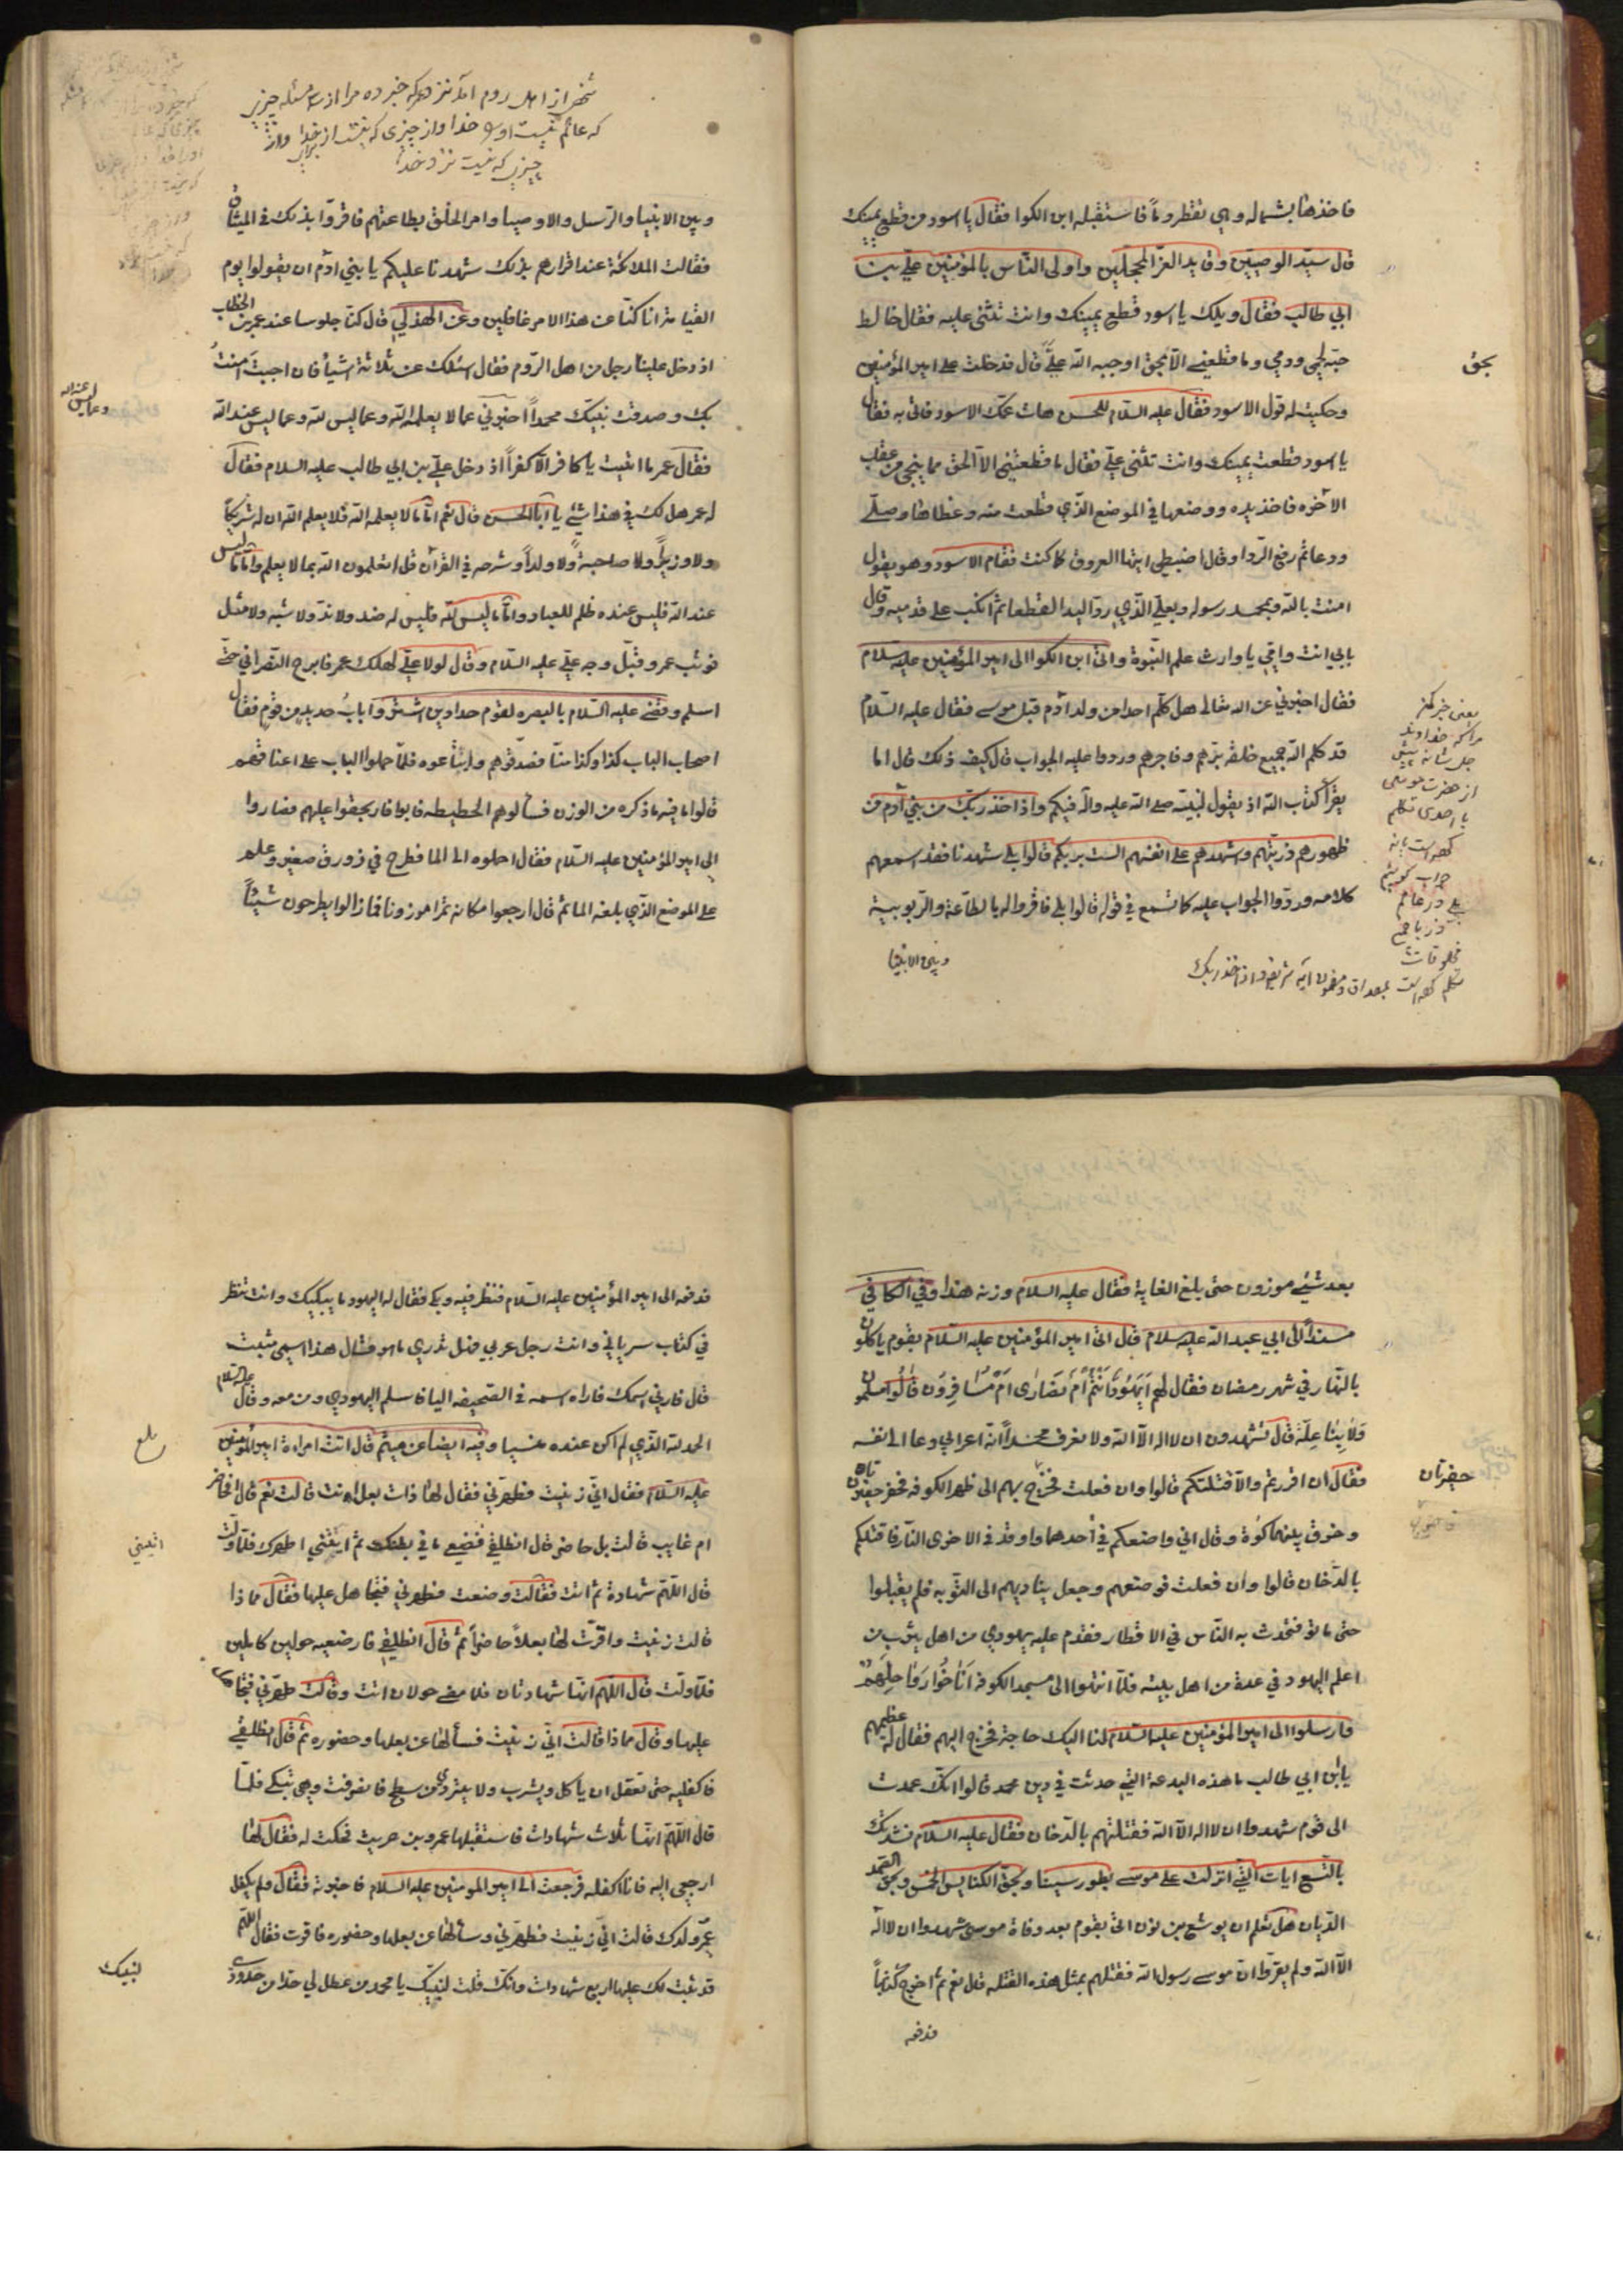 فاخذها بشماله وهي تقطر دماً فاستقبله ابن الكوا فقال يا اسود من قطع يمينك
قال سيّد الوصيّين وقايد الغرّ المحجّلين واولى النّاس بالمؤمنين عليّ بن
ابي طالب فقال ويلك يا اسود قطع يمينك وانت تثني عليه فقال خالط
حبّه لحمي ودمي وما قطعني الّا بحقّ اوجبه الله عليّ قال فدخلت على امير المؤمنين
وحكيت له قول الاسود فقال عليه السّلام للحسن هات عمّك الاسود فاتى به فقال
يا اسود قطعت يمينك وانت تثني عليّ فقال ما قطعتني الّا الحق مما ينجي من عقاب
الآخره فاخذ يده ووضعها في الموضع الّذي قطعت منه وغطاها وصلّى
ودعا ثم رفع الرّدا وقال اضبطي ايتها العروق كما كنت فقام الاسود وهو يقول
امنت بالله وبمحمد رسوله وبعليّ الّذي ردّ اليد القطعا ثم انكب على قدميه وقال
بابي انت وامّي يا وارث علم النّبوة واتى ابن الكوا الى امير المؤمنين عليه سلام
فقال اخبرني عن الله تعالى هل كلّم احدا من ولد آدم قبل موسى فقال عليه السّلام
قد كلم الله جميع خلقه برّهم وفاجرهم وردوا عليه الجواب قال كيف ذلك قال اما
يقرأ كتاب الله اذ يقول لنبيّه صلى الله عليه وآله فيكم واذ اخذ ربّك من بني آدم من
ظهورهم ذريتهم واشهدهم على انفسهم الست بربكم قالوا بلى شهدنا فقد اسمعهم
كلامه وردّوا الجواب عليه كما تسمع في قوله قالوا بلى فاقروا له بالطاعة والربوبية
وبين الانبيا
بحق
يعنى خبر كن
مرا كه خداوند
جل شانه پيش
از حضرت موسى
با احدى تكلم
جواب
بلى در عالم
مخلوقات
واذ اخذ ربك
شخصى از اهل روم آمد نزد عمر كه خبر ده مرا از سه مسئله چيزى
كه عالم نيست او را خدا واز چيزى كه نيست از براى خدا واز
چيزى كه نيست نزد خدا
وبين الانبيا والرّسل والاوصيا وامر الخلق بطاعتهم فاقرّوا بذلك في الميثاق
فقالت الملائكة عند اقرارهم بذلك شهدنا عليكم يا بني ادم ان يقولوا يوم
القيامة انا كنّا عن هذا الامر غافلين وعن الهذلي قال كنّا جلوسا عند عمر بن الخطاب
اذ دخل علينا رجل من اهل الرّوم فقال اسئلك عن ثلاثة اشيأ فان اجبت امنت
بك وصدقت نبيّك محمداً اخبرني عما لا يعلمه الله وعما ليس لله وعما ليس عند الله
فقال عمر ما اتيت يا كافر الّا كفراً اذ دخل عليّ بن ابي طالب عليه السلام فقال
له عمر هل لك في هذا شئ يا ابا الحسن قال نعم امّا ما لا يعلمه الله فلا يعلم الله ان له شريكاً
ولا وزيراً ولا صاحبةً ولا ولداً وشرحه في القرآن قل اتعلمون الله بما لا يعلم وامّا ما ليس
عند الله فليس عنده ظلم للعباد وامّا ما ليس لله فليس له ضد ولا ندّ ولا شبه ولا مثل
فوثب عمر وقبّل وجه عليّ عليه السّلام وقال لولا عليّ لهلك عمر فما برح النّصراني حتّى
اسلم وقضى عليه السّلام بالبصره لقوم حدادين اشتروا باب حديد من قوم فقال
اصحاب الباب كذا وكذا منّاً فصدّقوهم وابتاعوه فلمّا حملوا الباب على اعناقهم
قالوا ما فيه ما ذكره من الوزن فسألوهم الحطيطه فابوا فارجعوا عليهم فصاروا
الى امير المؤمنين عليه السّلام فقال احملوه الى الما فطرح في زورق صغير وعلم
على الموضع الّذي بلغه الما ثم قال ارجعوا مكانه تمرا موزونا فما زالوا يطرحون شيئاً
وعما ليس عند الله
بعد شيئ موزون حتى بلغ الغاية فقال عليه السلام وزنه هذا وفي الكافي
مسنداً الى ابي عبد الله عليه سلام قال اتى امير المؤمنين عليه السّلام بقوم ياكلون
بالنّهار في شهر رمضان فقال لهم ايهود انتم ام نصارى ام مسافرون قالوا مسلمون
قال تشهدون ان لا اله الّا الله ولا نعرف محمّداً انّه اعرابي دعا الى نفسه
فقال ان اقررتم والّا قتلتكم قالوا وان فعلت فخرج بهم الى ظهر الكوفه فحفر حفرتان
وخرق بينهما كوة وقال اني واضعكم في أحدهما واوقد في الاخرى النّار فاقتلكم
بالدّخان قالوا وان فعلت فوضعهم وجعل يناديهم الى التّوبه فلم يقبلوا
حتى ماتوا فتحدث به النّاس في الاقطار فقدم عليه يهودي من اهل يثرب من
اعلم اليهود في عدة من اهل بيته فلمّا انتهوا الى مسجد الكوفه اناخوا رواحلهم
فارسلوا الى امير المؤمنين عليه السّلام لنا اليك حاجة فخرج اليهم فقال له عظيمهم
يابن ابي طالب ما هذه البدعة الّتي حدثت في دين محمد قالوا انّك عمدت
الى قوم شهدوا ان لا اله الّا الله فقتلتهم بالدّخان فقال عليه السّلام نشدتك
بالتّسع ايات الّتي انزلت على موسى بطور سينا وبحق الكنايس الخمس وبحق الصّمد
الدّيان هل تعلم ان يوشع بن نون اتى بقوم بعد وفاة موسى شهدوا ان لا اله
الّا الله ولم يقرّوا ان موسى رسول الله فقتلهم بمثل هذه القتله قال نعم ثم اخرج كتاباً
فدفعه
حفرتان
فدفعه الى امير المؤمنين عليه السّلام فنظر فيه وبكى فقال له اليهود ما يبكيك وانت تنظر
في كتاب سرياني وانت رجل عربي فهل تدري ما هو فقال هذا اسمي مثبت
قال فارني اسمك فاراه اسمه في الصّحيفه اليا فاسلم اليهودي ومن معه وقال عليه السّلام
الحمد لله الّذي لم اكن عنده منسيا وفيه ايضا عن ميثم قال اتت امراة امير المؤمنين
عليه السّلام فقال اني زنيت فطهّرني فقال لها ذات بعل انت قالت نعم قال افحاضر
ام غايب قالت بل حاضر قال انطلقي فضعي ما في بطنك ثم ايتيني اطهرك فلمّا ولّت
قال اللّهم شهادة ثم اتت فقالت وضعت فطهرني فتجاهل عليها فقال مما ذا
قالت زنيت واقرّت لها بعلاً حاضراً ثم قال انطلقي فارضعيه حولين كاملين
فلمّا ولّت قال اللّهم انها شهادتان فلما مضى حولان اتت وقالت طهرني فتجاهل
عليها وقال مما ذا قالت انّي زنيت فسألها عن بعلها وحضوره ثم قال انطلقي
فاكفليه حتى تعقل ان ياكل ويشرب ولا يتردى من سطح فانصرفت وهي تبكي فلمّا
قال اللّهم انها ثلاث شهادات فاستقبلها عمرو بن حريث فحكت له فقال لها
ارجعي اليه فانا اكفله فرجعت الى امير المومنين عليه السلام فاخبرته فقال ولم يكفل
عمرو ولدك قالت انّي زنيت فطهّرني وسألها عن بعلها وحضوره فاقرت فقال اللّهم
قد ثبت لك عليها اربع شهادات وانّك قلت لنبيّك يا محمد من عطل لي حدّا من حدودي
بلغ
ايتيني
لنبيك